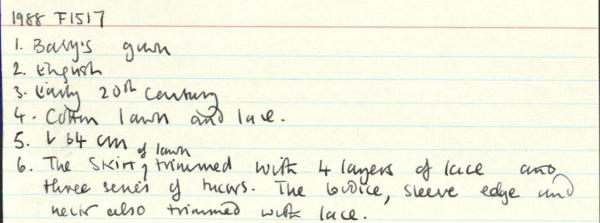 1988 F1517
1. Baby's gown
2. English
3. Early 20th Century
4. Cotton lawn and lace.
5. L 64 cm
6. The skirt, of lawn trimmed with 4 layers of lace and
three series of tucks. The bodice, sleeve edge and
neck also trimmed with lace.